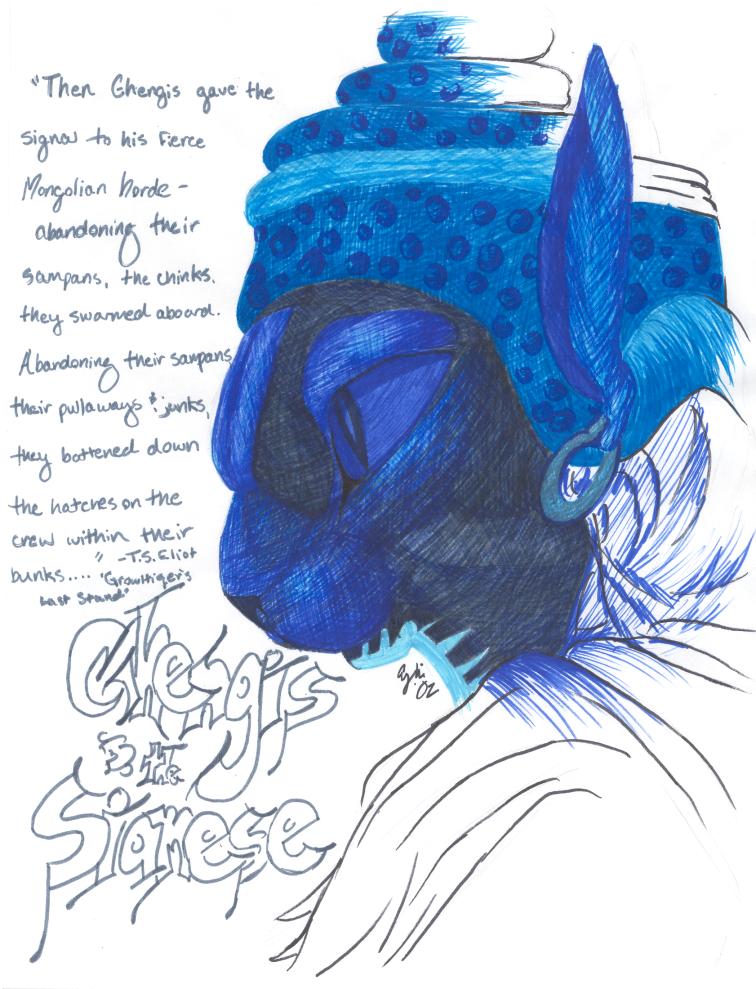 "Then Ghengis gave the
signal to his fierce
Mongolian horde -
abandoning their
sampans, the chinks.
they swarmed aboard.
Abandoning their sampans,
their pullaways & junks,
they battened down
the hatches on the
crew within their
bunks...." -T.S. Eliot
"Growltiger's
Last Stand"
Ghengis
& the
Siamese
'02